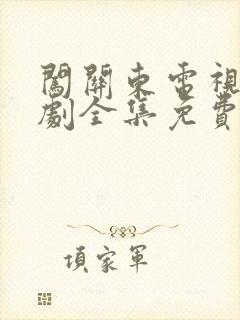 闖關東電視
劇全集免費
項家軍